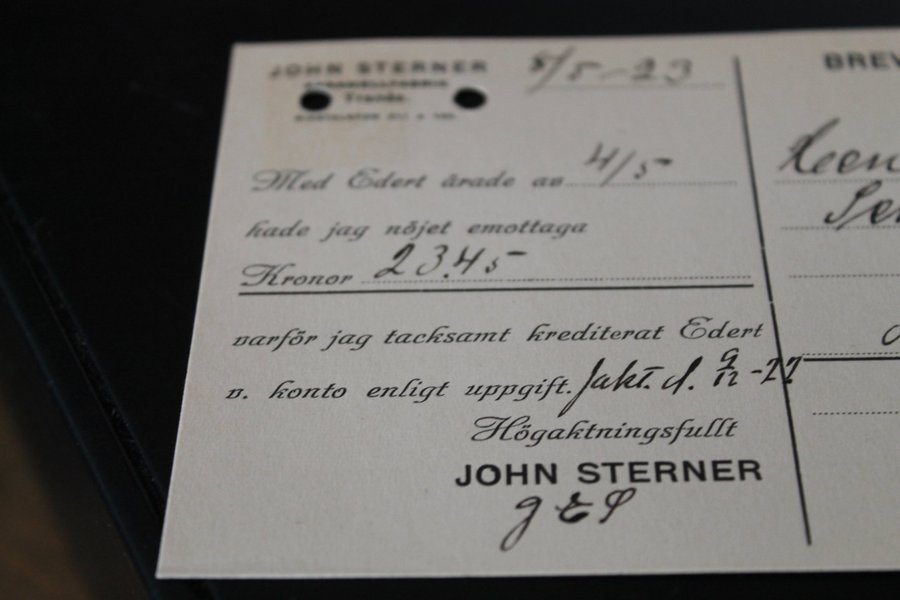 JOHN STERNER
Tranås.
8/5-23
Med Edert ärade av 4/5
hade jag nöjet emottaga
Kronor 23.45
varför jag tacksamt krediterat Edert
v. konto enligt uppgift. fakt. d. 9/12 -22
Högaktningsfullt
JOHN STERNER
BREV